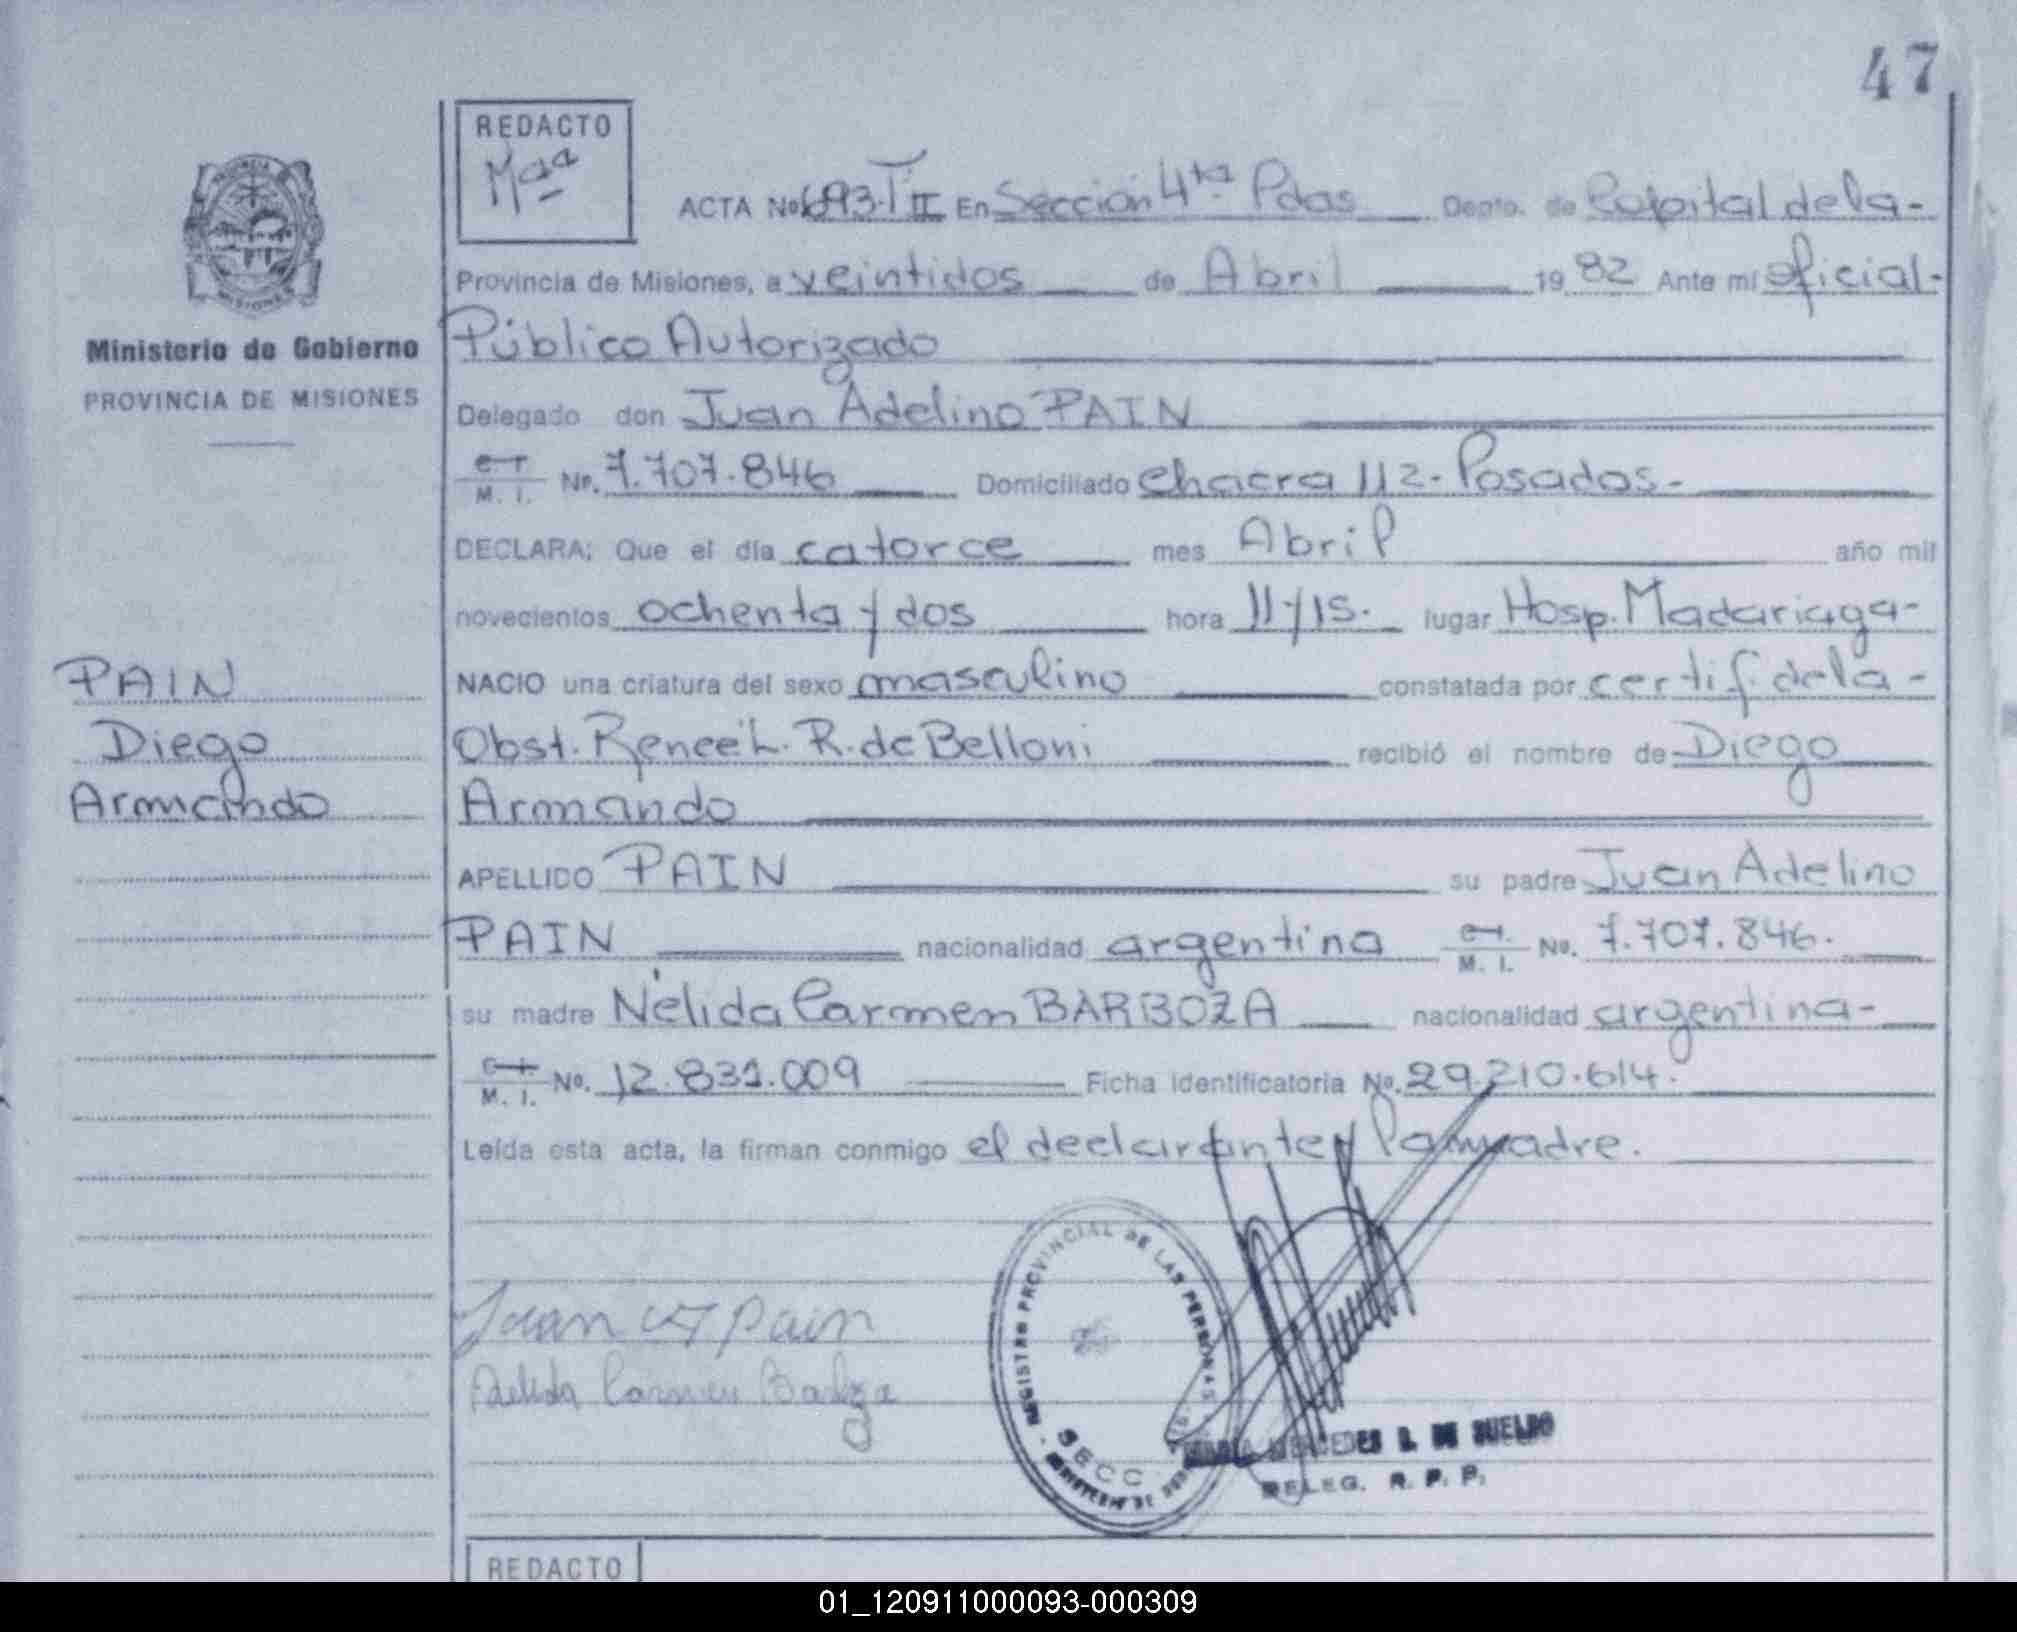 47
REDACTO
Maa
ACTA No 693.T II En Sección 4ta Pdas Depto. de Capital de la-
Provincia de Misiones, a veintidos de Abril 19 82 Ante mí oficial-
Público Autorizado
Ministerio de Gobierno
PROVINCIA DE MISIONES
Delegado don Juan Adelino PAIN
M. I. No. 7.707.846 Domiciliado Chacra 112- Posadas-
DECLARA: Que el día catorce mes Abril año mil
novecientos ochenta y dos hora 11 y 15. lugar Hosp. Madariaga-
PAIN
Diego
Armando
NACIO una criatura del sexo masculino constatada por certif. de la-
Obst. Reneé L. R. de Belloni recibió el nombre de Diego
Armando
APELLIDO PAIN su padre Juan Adelino
PAIN nacionalidad argentina M. I. No. 7.707.846.
su madre Nélida Carmen BARBOZA nacionalidad argentina-
M. I. No. 12.831.009 Ficha identificatoria No. 29.210.614.
Leída esta acta, la firman conmigo el declarante y la madre.
REGISTRO PROVINCIAL DE LAS PERSONAS
SECC
Juan A Pain
Nelida Carmen Barboza
MARIA MERCEDES B. DE SUELDO
DELEG. R. P. P.
REDACTO
01_120911000093-000309